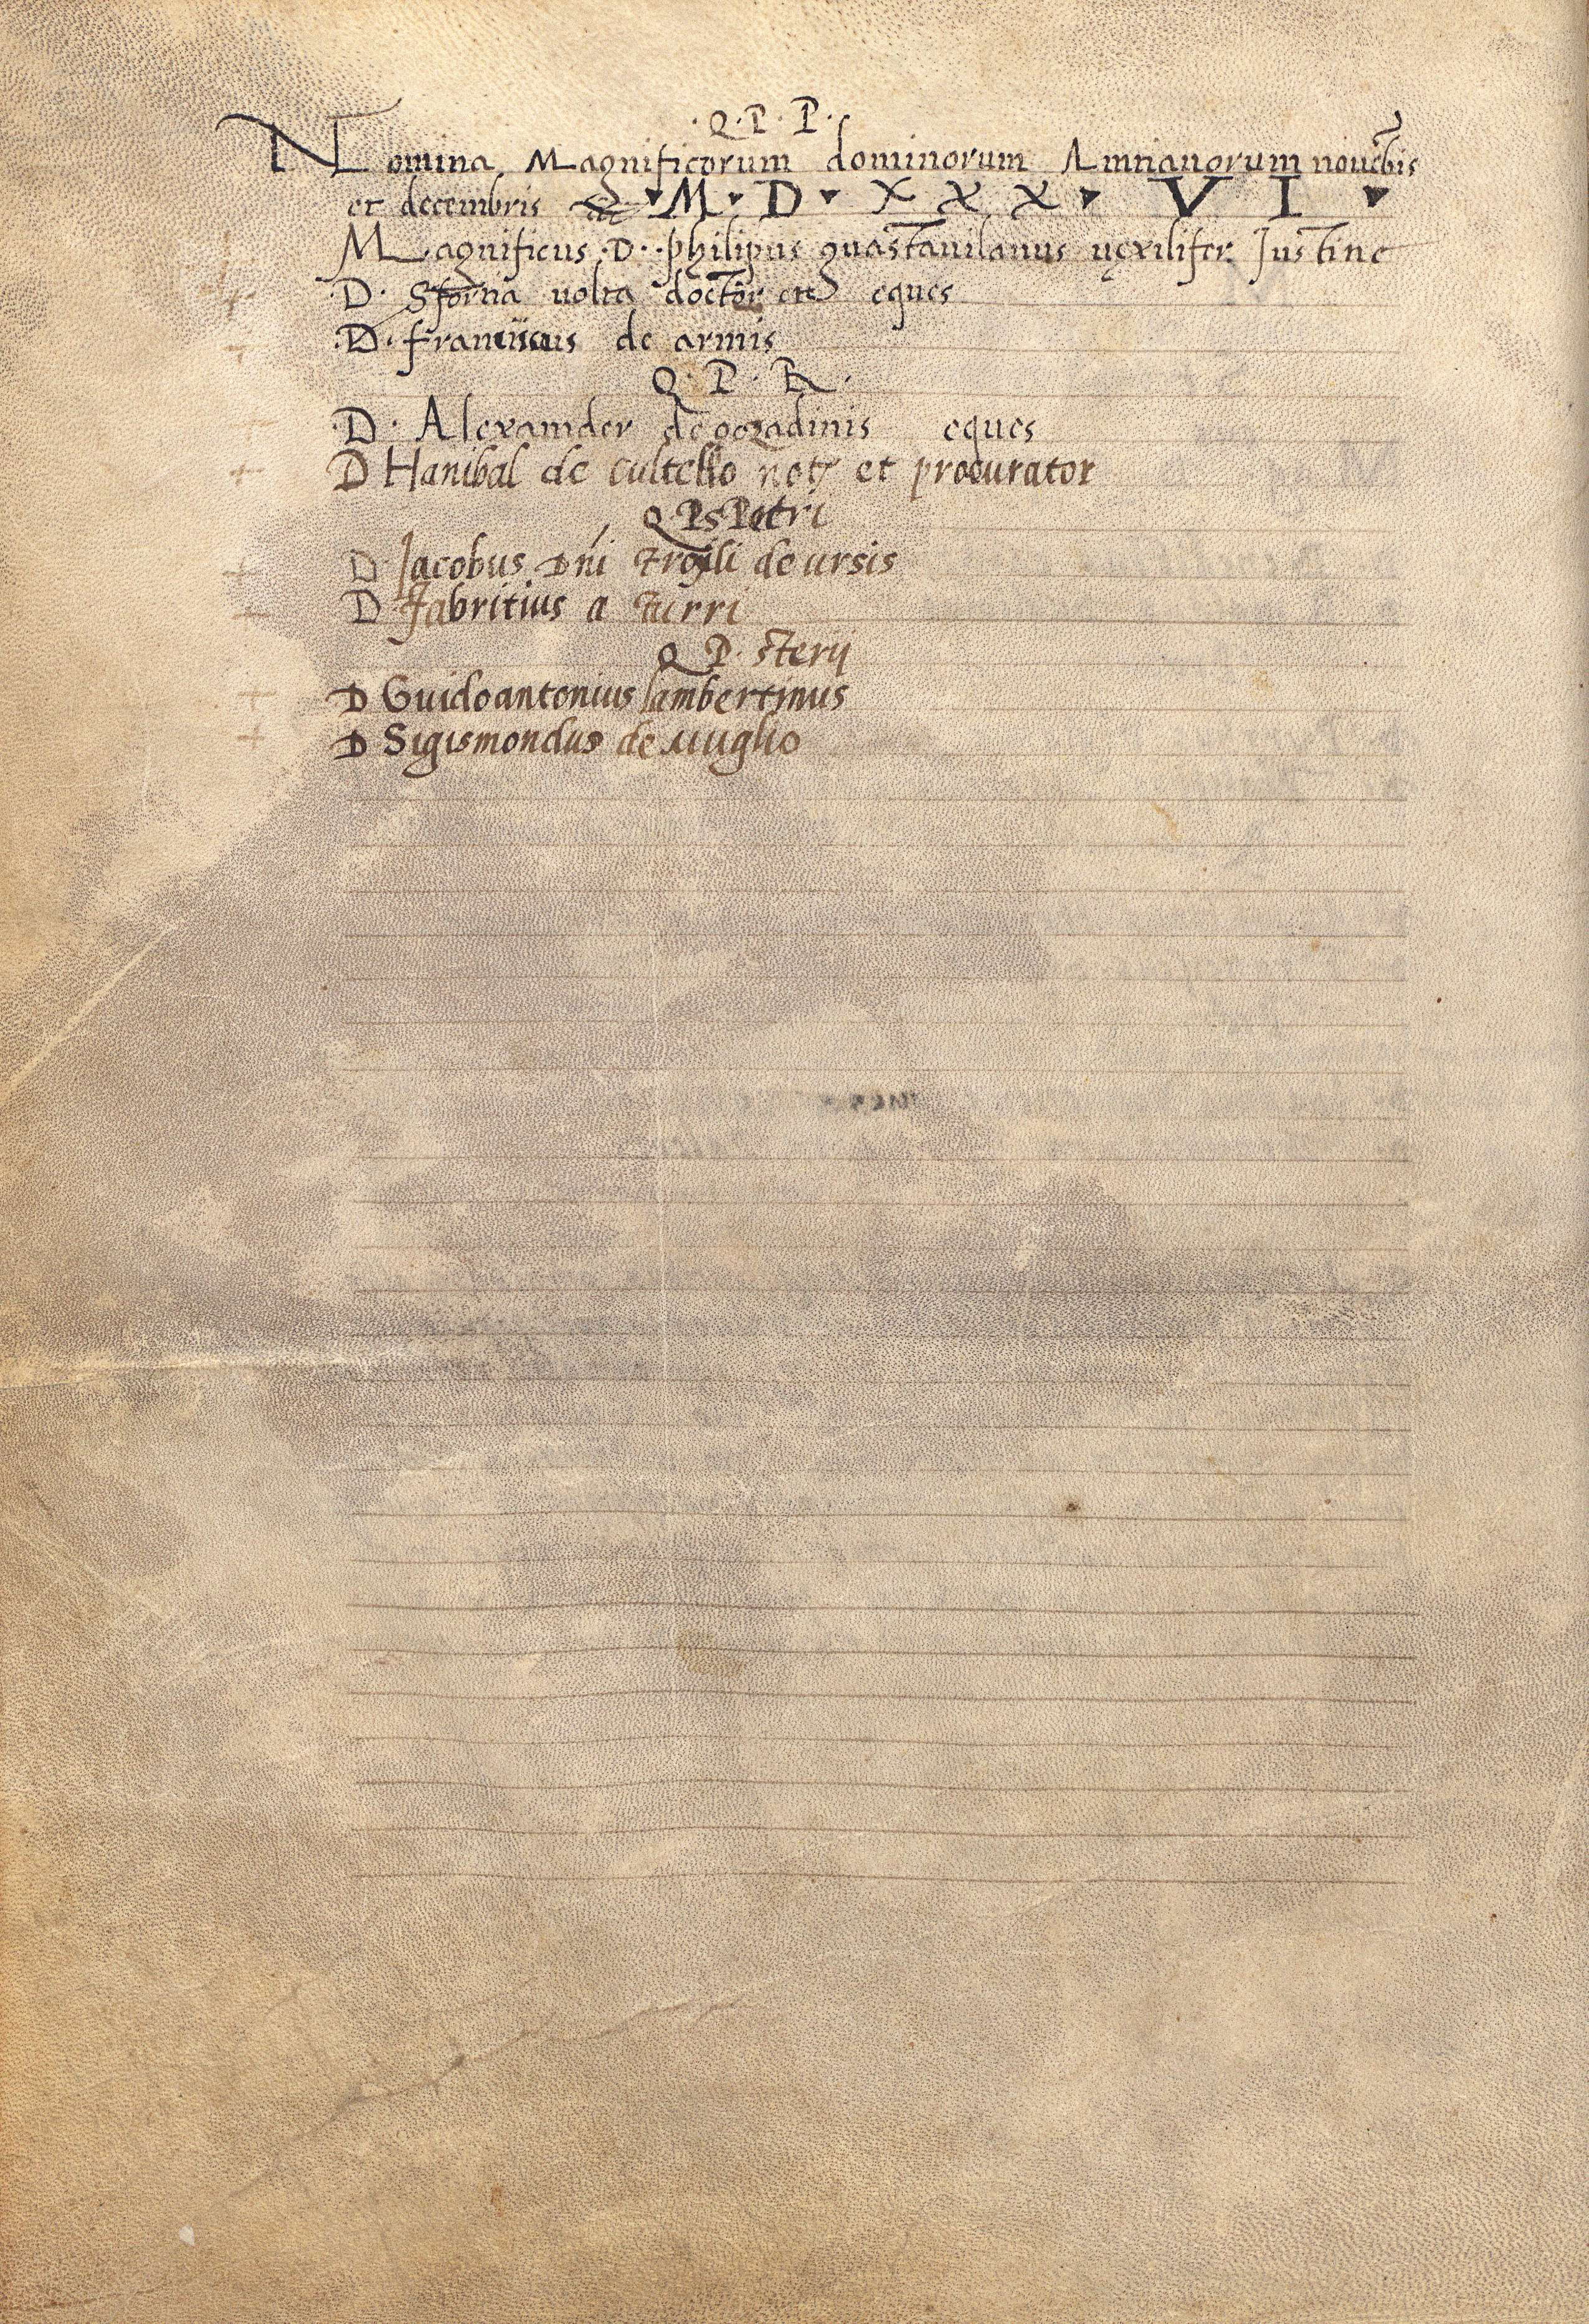 ·Q·P·P·
Nomina Magnificorum dominorum Antianorum nouēbis
et decembris ·M·D·XXX·VI·
Magnificus ·D· philipus guastauilanus uęxilifer Justitie
·D· Sfortia uolta doctor et eques
·D· franciscus de armis
Q·P·R·
·D· Alexander de pozadinis eques
D Hanibal de cultello not9 et procurator
Q P S Petri
D Jacobus Dñi Troili de ursis
D· fabritius a turri
Q P· sterij
D Guidoantonius lambertinus
D Sigismondus de Muglio